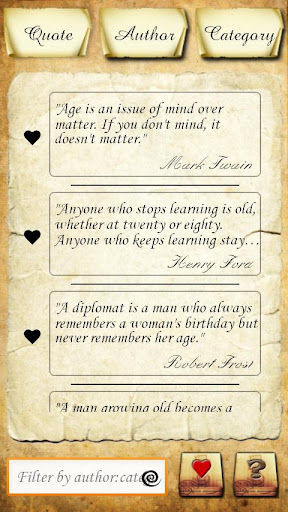 Quote Author Category
"Age is an issue of mind over
matter. If you don't mind, it
doesn't matter."
Mark Twain
"Anyone who stops learning is old,
whether at twenty or eighty.
Anyone who keeps learning stay…
Henry Ford
"A diplomat is a man who always
remembers a woman's birthday but
never remembers her age."
Robert Frost
"A man growing old becomes a
Filter by author:cat
?